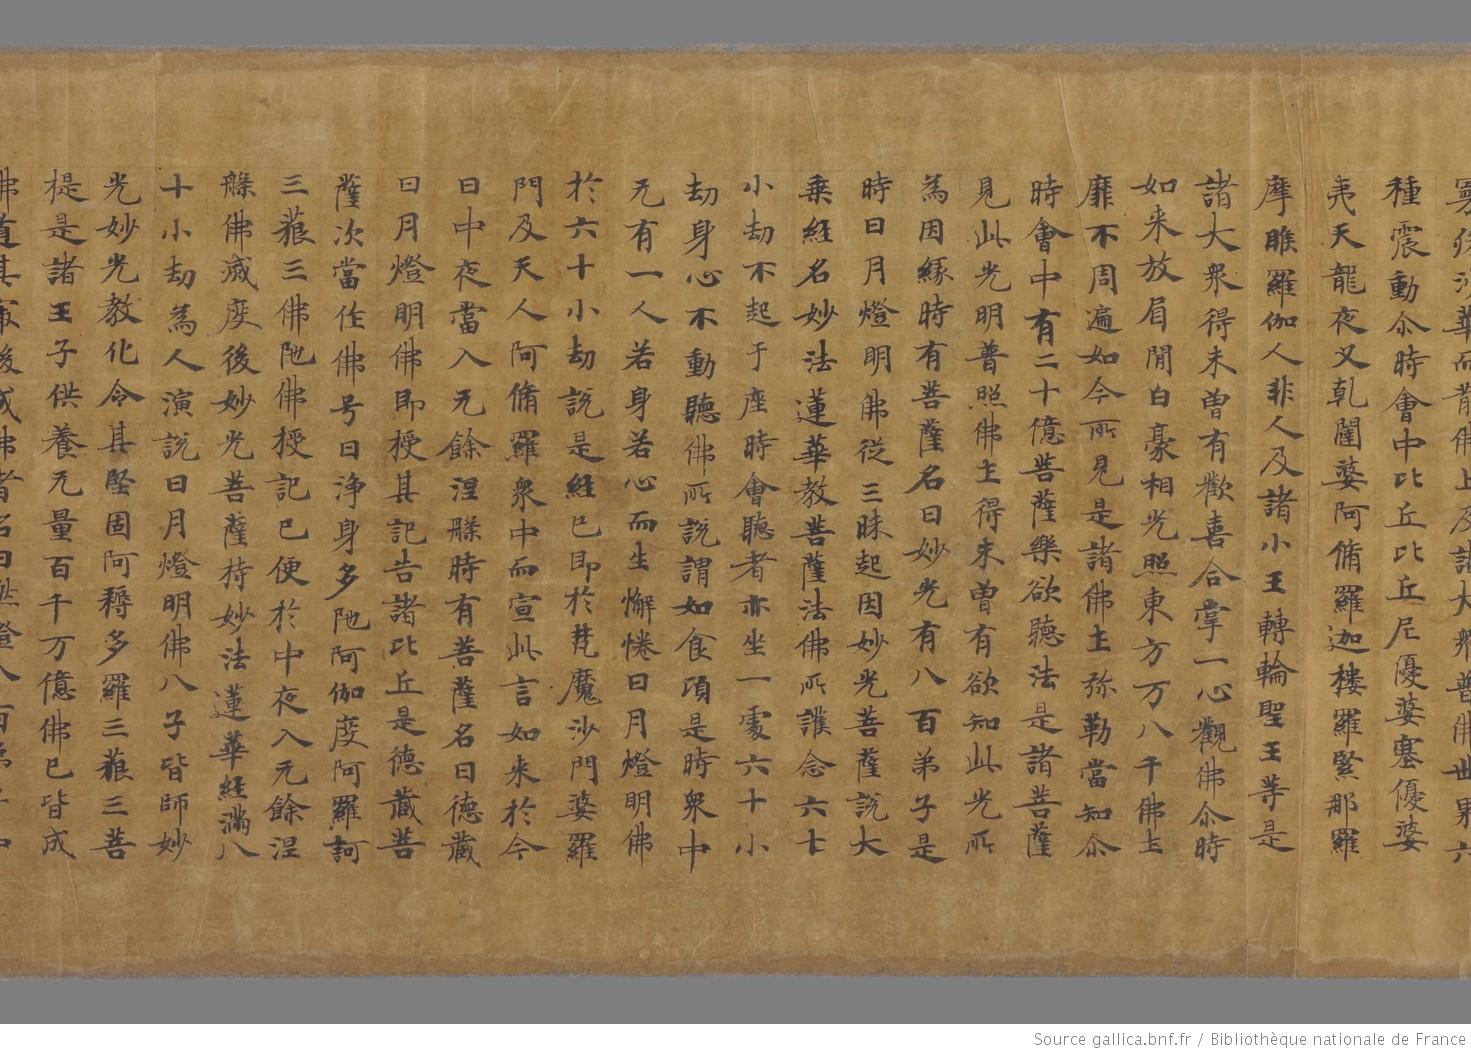 沙華而散佛上及諸大衆普佛世界六
種震動尒時會中比丘比丘尼優婆塞優婆
夷天龍夜叉乹闥婆阿脩羅迦樓羅緊那羅
摩睺羅伽人非人及諸小王轉輪聖王等是
諸大衆得未曽有歡喜合掌一心觀佛尒時
如来放眉間白豪相光照東方万八千佛土
靡不周遍如今所見是諸佛土弥勒當知尒
時會中有二十億菩薩樂欲聽法是諸菩薩
見此光明普照佛土得未曽有欲知此光所
為因縁時有菩薩名曰妙光有八百弟子是
時日月燈明佛従三昧起因妙光菩薩說大
乗経名妙法蓮華教菩薩法佛所護念六十
小劫不起于座時會聽者亦坐一處六十小
劫身心不動聽佛所說謂如食頃是時衆中
无有一人若身若心而生懈惓日月燈明佛
於六十小劫說是経已即於梵魔沙門婆羅
門及天人阿脩羅衆中而宣此言如来於今
日中夜當入无餘涅槃時有菩薩名曰德蔵
日月燈明佛即授其記告諸比丘是德蔵菩
薩次當作佛号曰浄身多陁阿伽度阿羅訶
三藐三佛陁佛授記已便於中夜入无餘涅
槃佛滅度後妙光菩薩持妙法蓮華経滿八
十小劫為人演說日月燈明佛八子皆師妙
光妙光教化令其堅固阿耨多羅三藐三菩
提是諸王子供養无量百千万億佛已皆成
佛道其最後成佛者名曰然燈八百弟子
Source gallica.bnf.fr / Bibliothèque nationale de France